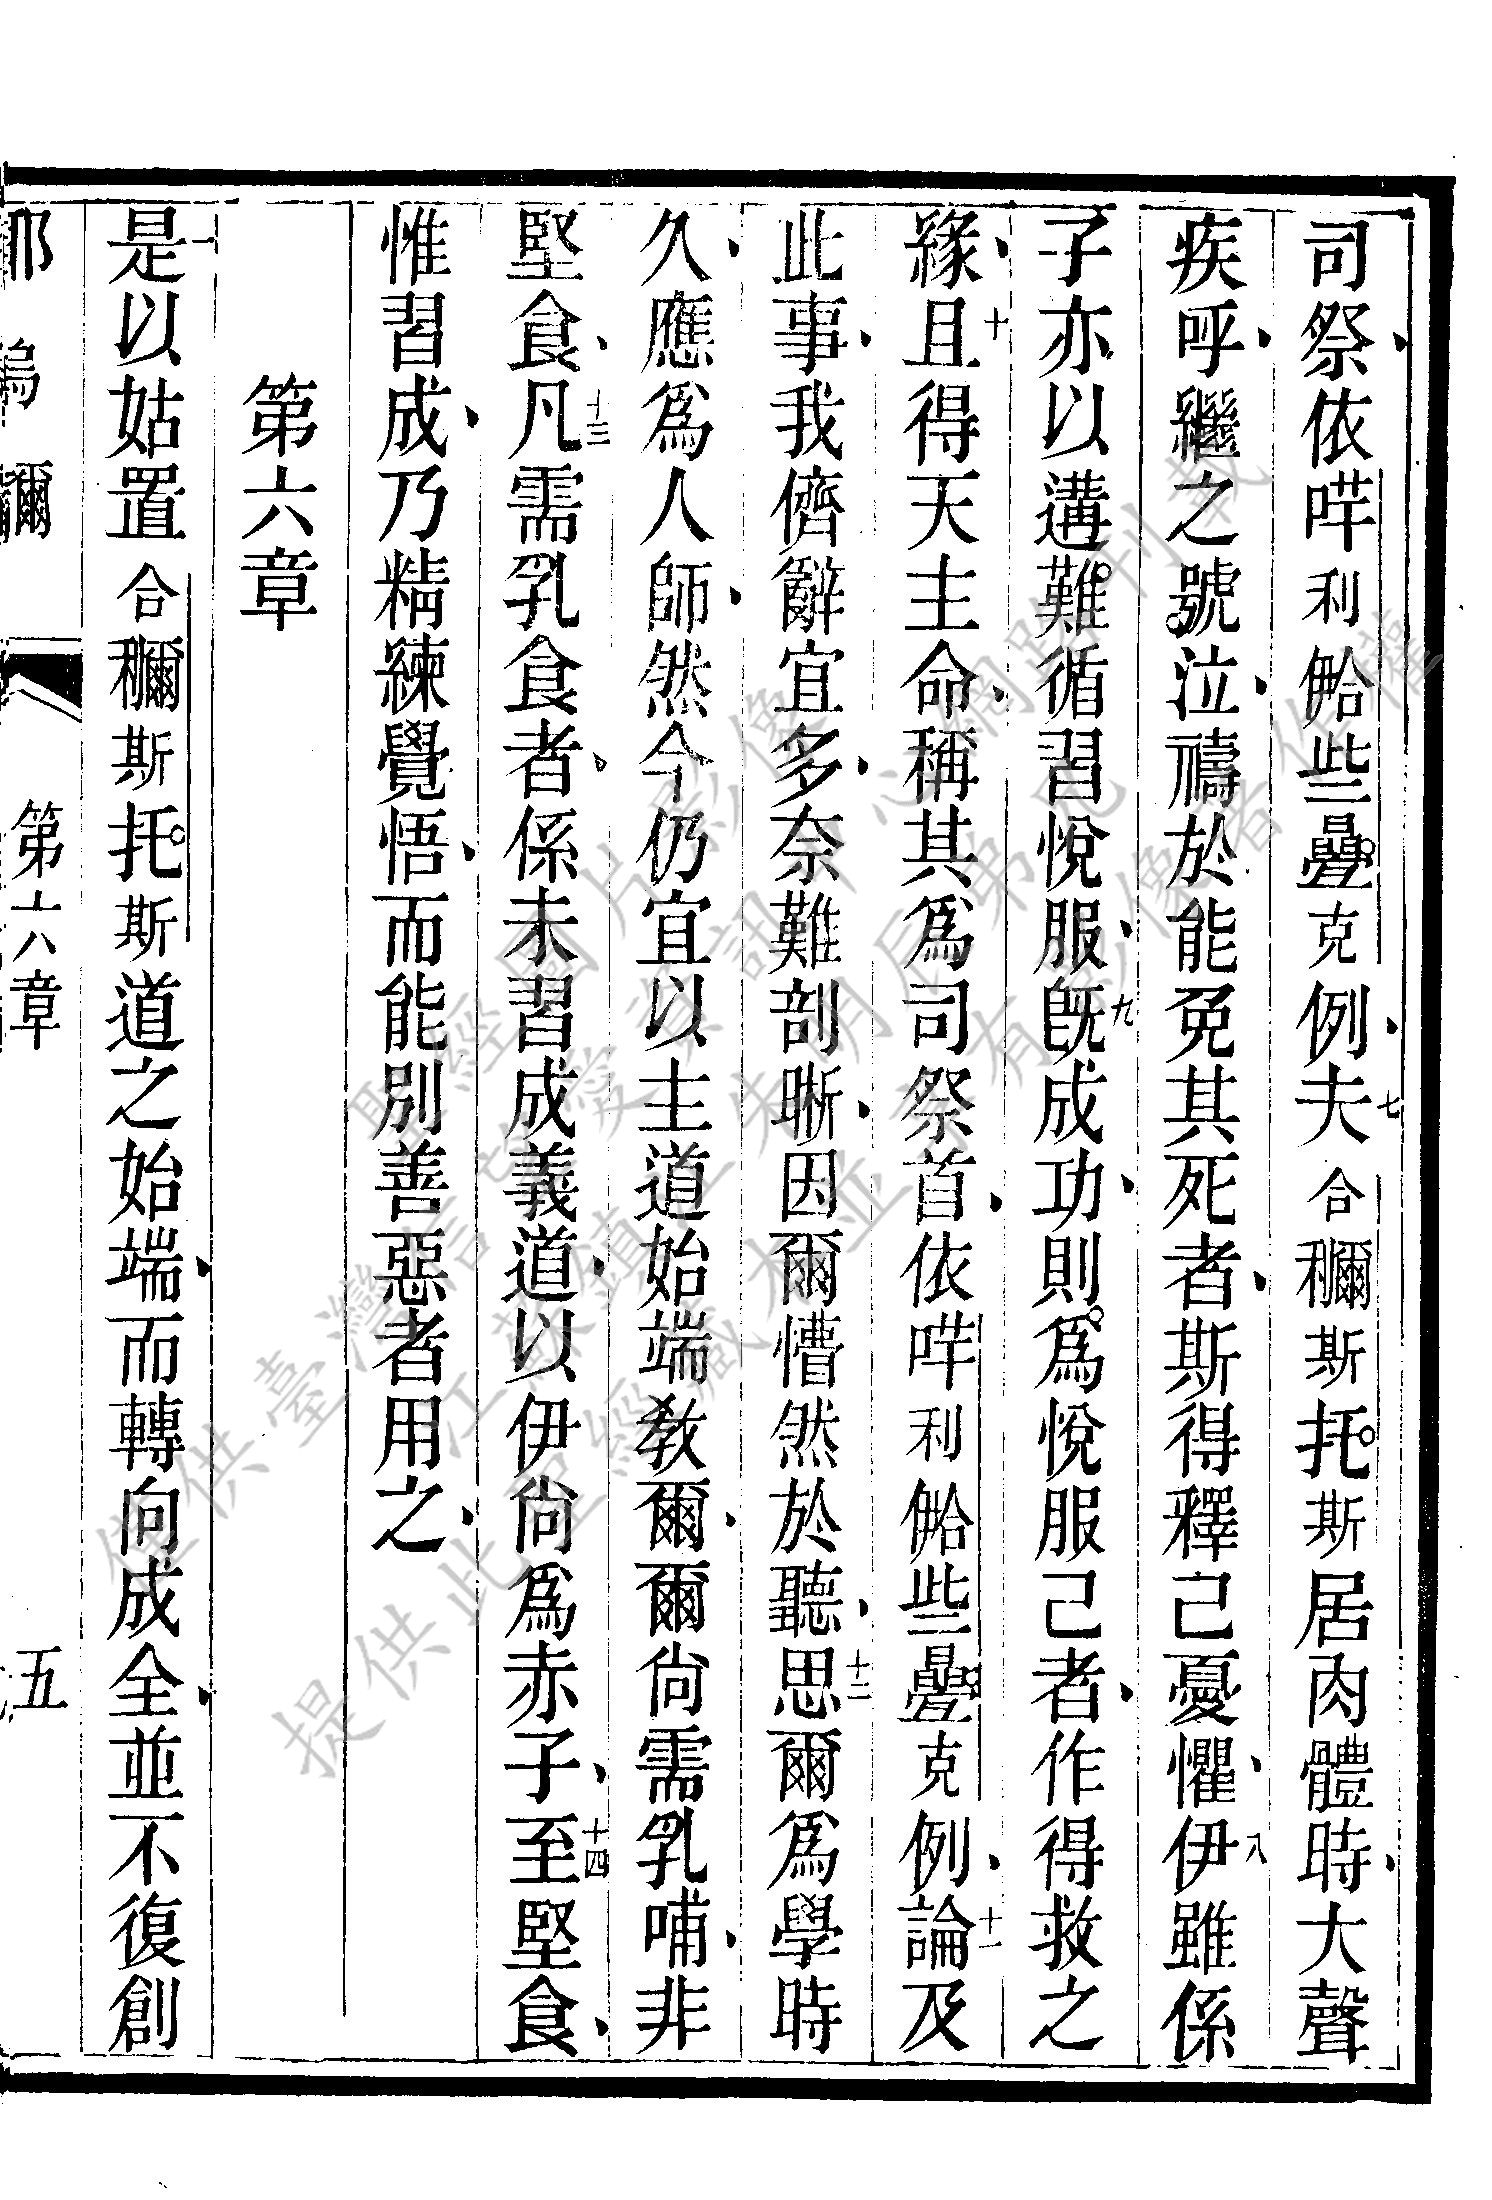 司祭、依哶利𠎀些㬪克例、七夫合穪斯托斯居肉體時、大聲
疾呼、繼之號泣、禱於能免其死者、斯得釋己憂懼、八伊雖係
子亦以遘難循習悅服、九旣成功、則爲悅服己者、作得救之
緣、十且得天主命、稱其爲司祭首、依哶利𠎀些㬪克例、十一論及
此事、我儕辭宜多、奈難剖晰、因爾懵然於聽、十二思爾爲學時
久、應爲人師、然今仍宜以主道始端敎爾、爾尙需乳哺、非
堅食、十三凡需乳食者、係未習成義道、以伊尙爲赤子、十四至堅食、
惟習成、乃精練覺悟、而能別善惡者用之、
第六章
一是以姑置合穪斯托斯道之始端、而轉向成全、並不復創
第六章
五